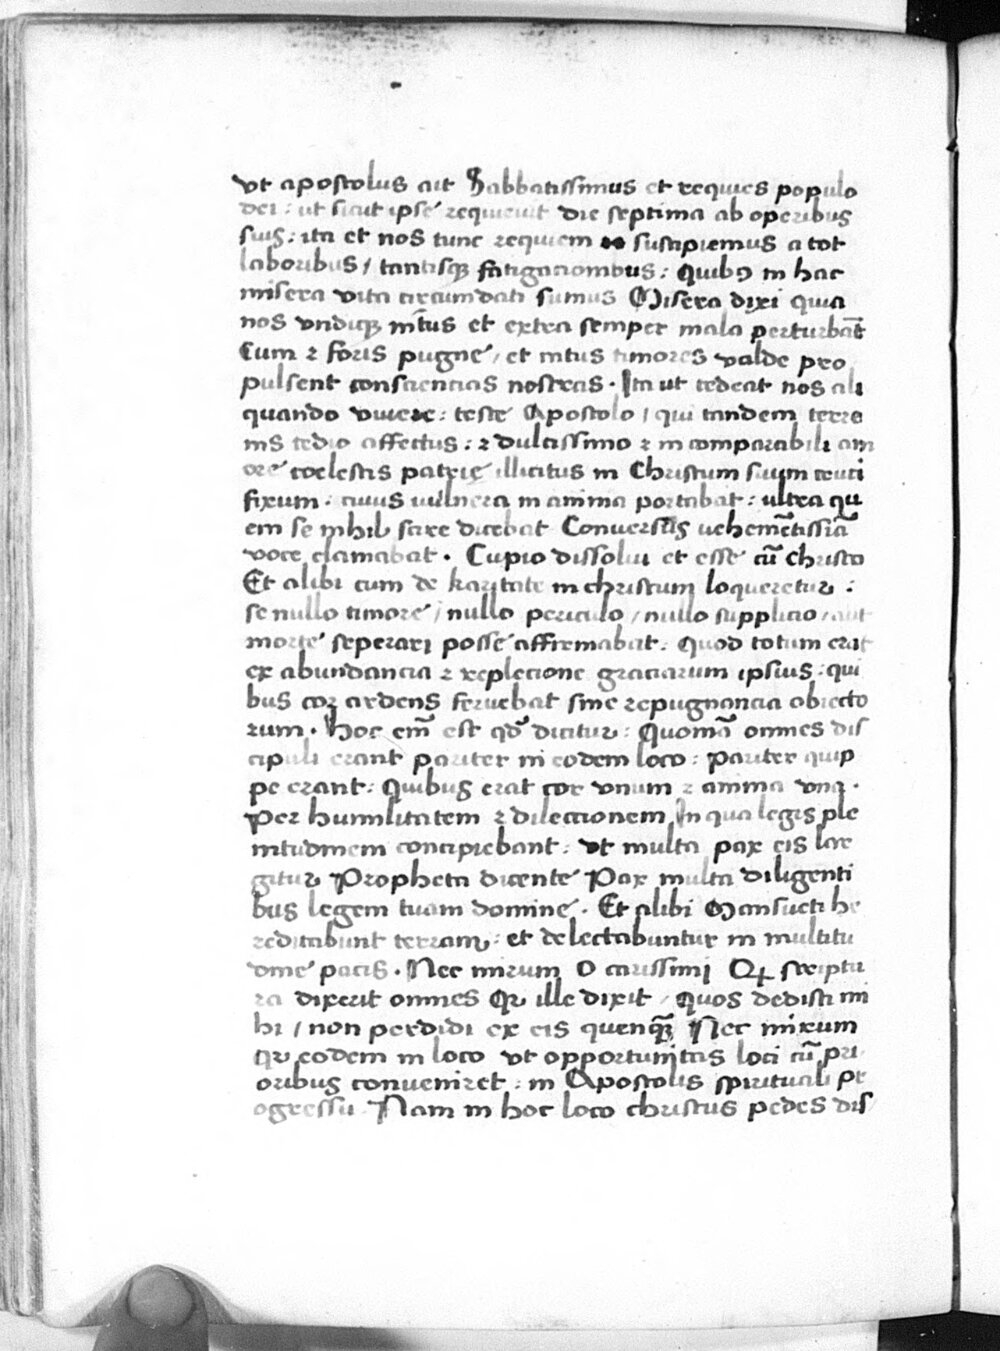 vt apostolus ait Sabbatissimus et requies populo
dei : ut sicut ipse requieuit die septima ab operibus
suis : ita et nos tunc requiem suscipiemus a tot
laboribus / tantisqꝫ fatigacionibus : Quibꝰ in hac
misera vita circumdati sumus Misera dixi quia
nos vndiqꝫ intus et extra semper mala perturbāt
Cum ⁊ foris pugne / et intus timores valde pro
pulsent conscientias nostras · Ita ut tedeat nos ali
quando viuere : teste Apostolo / qui tandem terre
nis tedio affectus : ⁊ dulcissimo ⁊ in comparabili am
ore coelestis patrie illicitus in Christum suum cruci
fixum · cuius vulnera in anima portabat : ultra qu
em se nihil scire dicebat Conuersus uehemētissiā
voce clamabat · Cupio dissolui et esse cū christo
Et alibi cum de karitate in christum loqueretur :
se nullo timore / nullo periculo / nullo supplicio / aut
morte seperari posse affirmabat : Quod totum erat
ex abundancia ⁊ replecione graciarum ipsius : qui
bus cor ardens feruebat sine repugnancia obiecto
rum · Hoc em̄ est qd̄ dicitur : Quoniā omnes dis
cipuli erant pariter in eodem loco : pariter quip
pe erant : Quibus erat cor vnum ⁊ anima vna ·
Per humilitatem ⁊ dileccionem In qua legis ple
nitudinem concipiebant : vt multa pax eis lar
gitur Propheta dicente Pax multa diligenti
bus legem tuam domine · Et alibi Mansueti he
reditabunt terram : et delectabuntur in multitu
dine pacis · Nec mirum O carissimi Qꝫ scriptu
ra dixerit omnes Qꝛ ille dixit / Quos dedisti mi
hi / non perdidi ex eis quenqꝫ̄ Nec mirum
Qꝛ eodem in loco vt opportunitas loci cū pri
oribus conueniret : in Apostolis spirituali pr
ogressu · Nam in hoc loco christus pedes dis